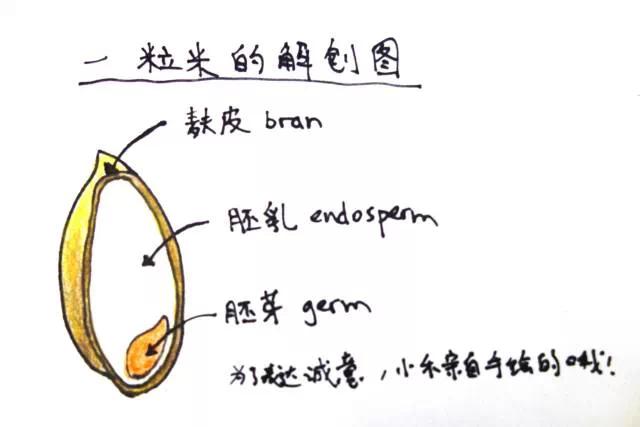 一粒米的解刨图
麸皮 bran
胚乳 endosperm
胚芽 germ
为了表达诚意，小禾亲自手绘的哦！